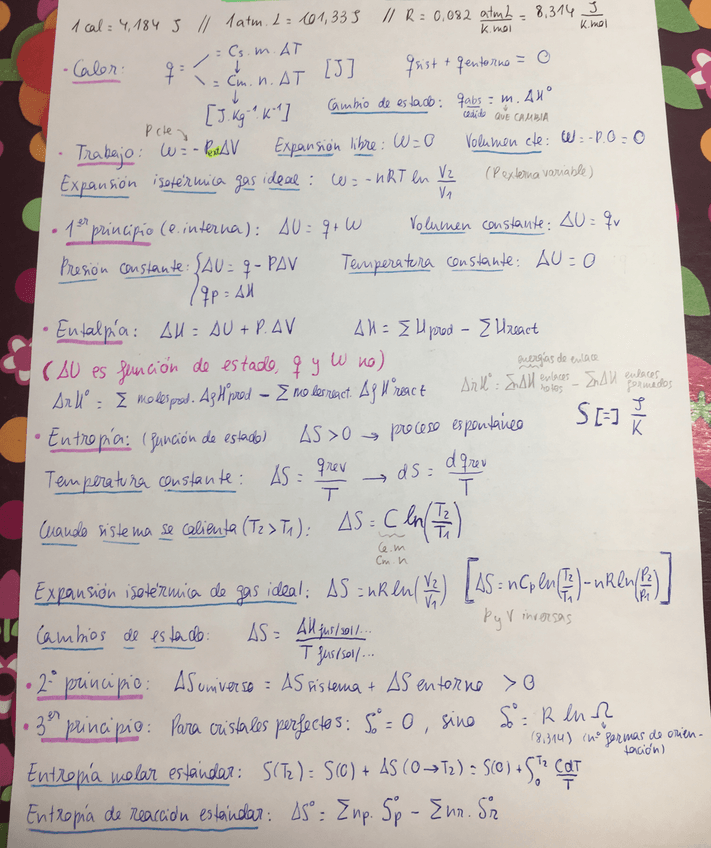 1 cal = 4,184 J // 1 atm. L = 101,33 J // R = 0,082 atm L / K. mol = 8,314 J / K. mol
• Calor: q = = Cs. m. ΔT = Cm. n. ΔT [J] qsist + qentorno = 0
[J. Kg⁻¹ K⁻¹] Cambio de estado: qabs cedido = m. ΔH° QUE CAMBIA
P cte
• Trabajo: W = - Pext ΔV Expansión libre: W = 0 Volumen cte: W = -P. 0 = 0
Expansión isotérmica gas ideal: W = -nRT ln V2/V1 (P externa variable)
• 1er principio (e. interna): ΔU = q + W Volumen constante: ΔU = qv
Presión constante: { ΔU = q - PΔV Temperatura constante: ΔU = 0
qp = ΔH
• Entalpía: ΔH = ΔU + P. ΔV ΔH = Σ Hprod - Σ Hreact
(ΔU es función de estado, q y W no)
energías de enlace
ΔrH° = Σ moles prod. ΔfH°prod - Σ moles react. ΔfH°react ΔrH° = ΣnΔH enlaces rotos - ΣnΔH enlaces formados
• Entropía: (función de estado) ΔS > 0 → proceso espontáneo S [=] J/K
Temperatura constante: ΔS = qrev/T → dS = dqrev/T
Cuando sistema se calienta (T2 > T1): ΔS = C ln(T2/T1)
Ce. m
Cm. n
Expansión isotérmica de gas ideal: ΔS = nR ln(V2/V1) [ΔS = nCp ln(T2/T1) - nR ln(P2/P1)]
P y V inversas
Cambios de estado: ΔS = ΔH fus/sol/... / T fus/sol/...
• 2º principio: ΔS universo = ΔS sistema + ΔS entorno > 0
• 3er principio: Para cristales perfectos: S°₀ = 0, sino S°₀ = R ln Ω
(8,314) (nº formas de orientación)
Entropía molar estándar: S(T2) = S(0) + ΔS (0→T2) = S(0) + ∫₀^T2 CdT/T
Entropía de reacción estándar: ΔS° = Σ np. S°p - Σ nr. S°r